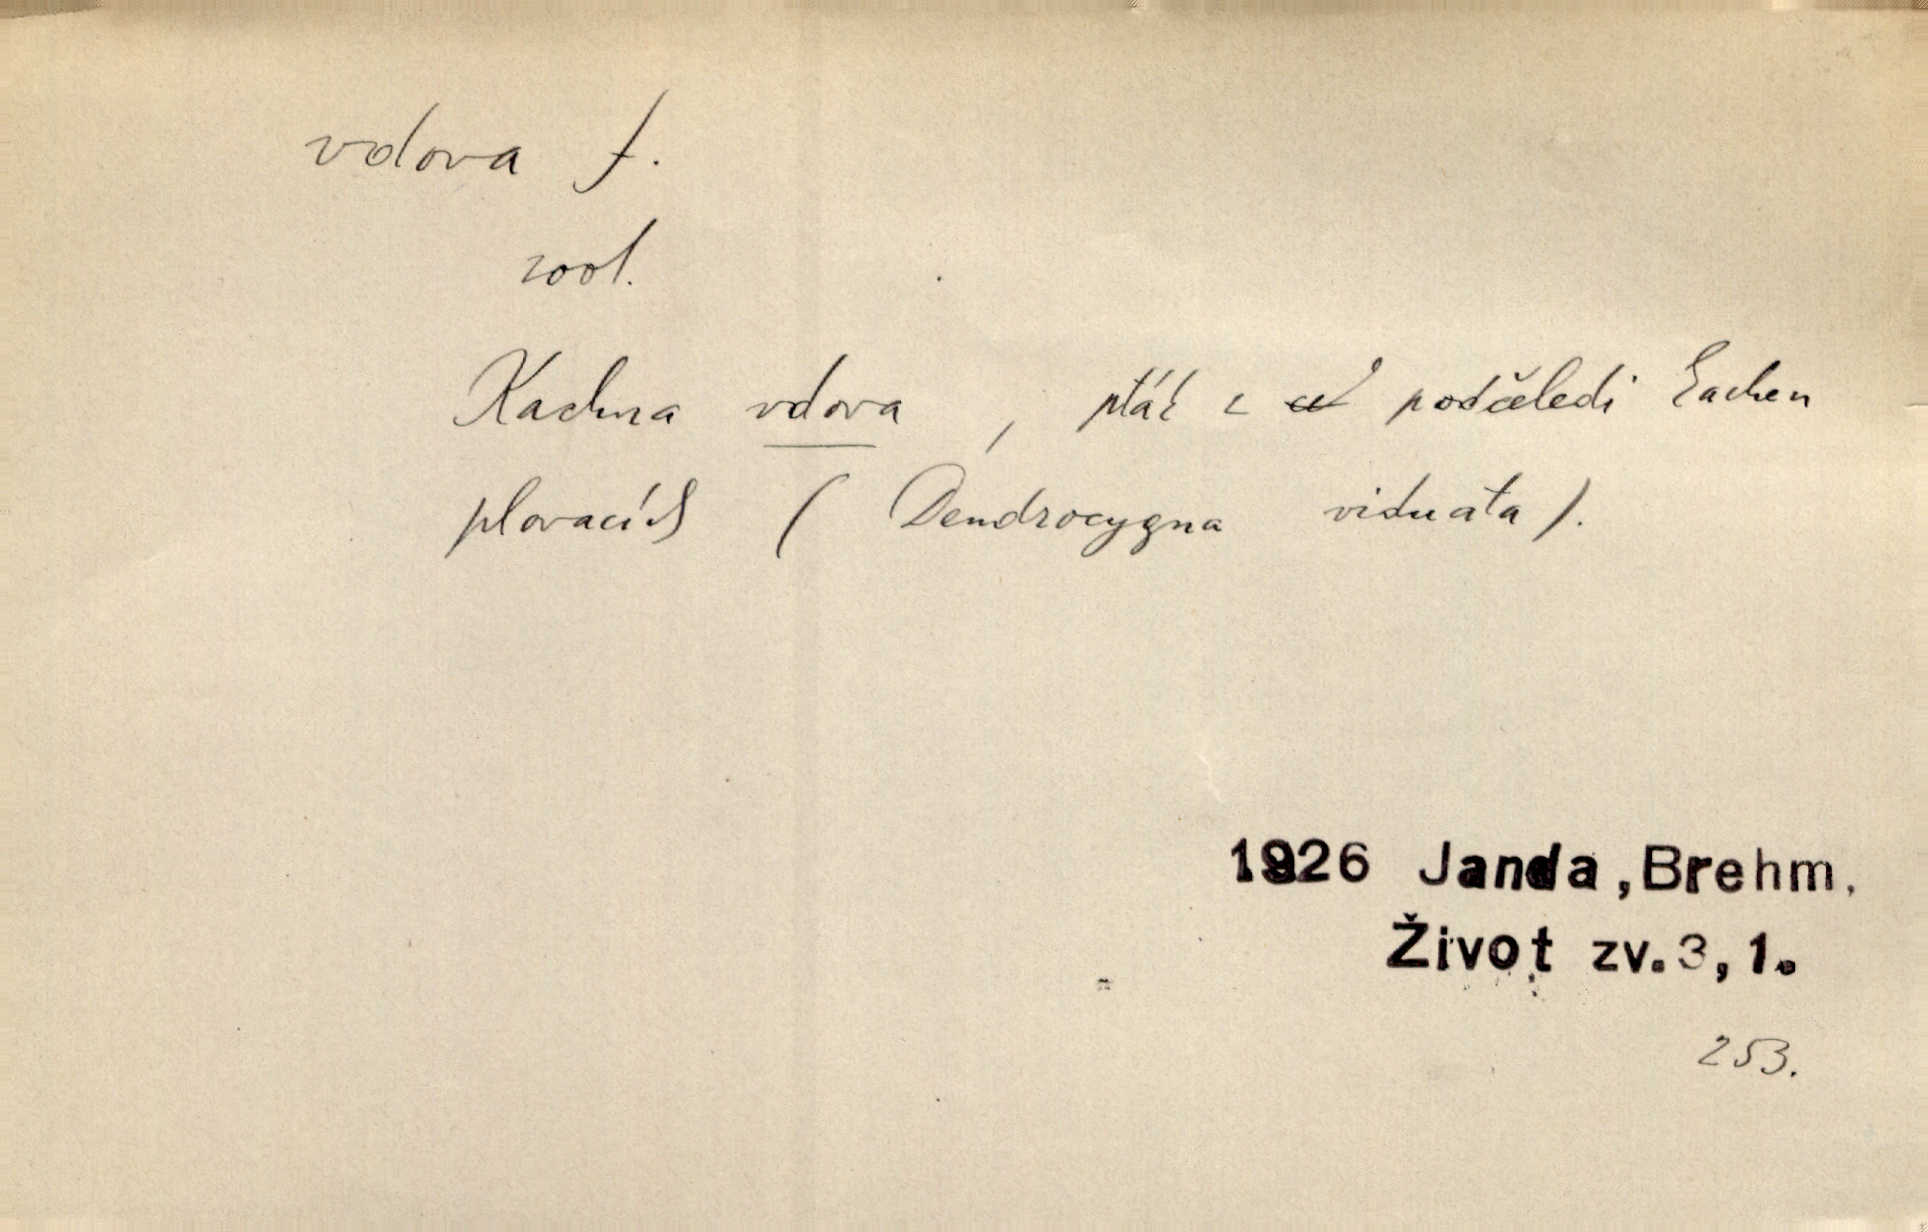 vdova f.
zool.
Kachna vdova, pták z podčeledi kachen
plovacích (Dendrocygna viduata).
1926 Janda, Brehm.
Život zv. 3, 1.
253.